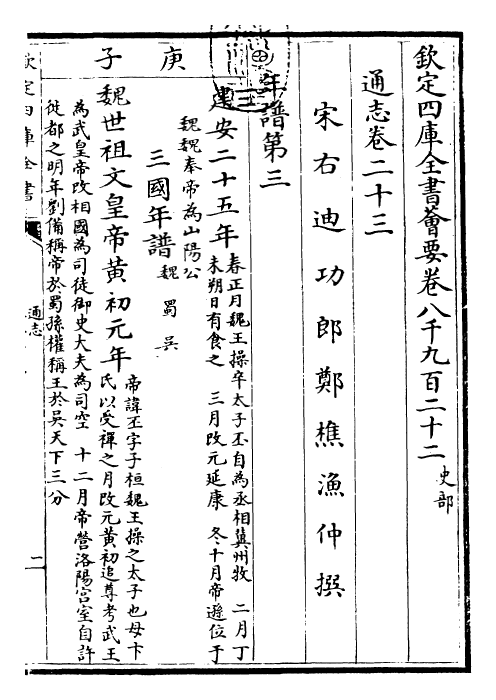 欽定四庫全書薈要卷八千九百二十二 史部
通志卷二十三
宋右迪功郎鄭樵漁仲撰
年譜第三
庚子
建安二十五年 春正月魏王操卒太子丕自為丞相冀州牧 二月丁
未朔日有食之 三月改元延康 冬十月帝遜位于
魏魏奉帝為山陽公
三國年譜 魏 蜀 吳
魏世祖文皇帝黃初元年 帝諱丕字子桓魏王操之太子也母卞
氏以受禪之月改元黃初追尊考武王
為武皇帝改相國為司徒御史大夫為司空 十二月帝營洛陽宮室自許
徙都之明年劉備稱帝於蜀孫權稱王於吳天下三分
欽定四庫全書
通志
二